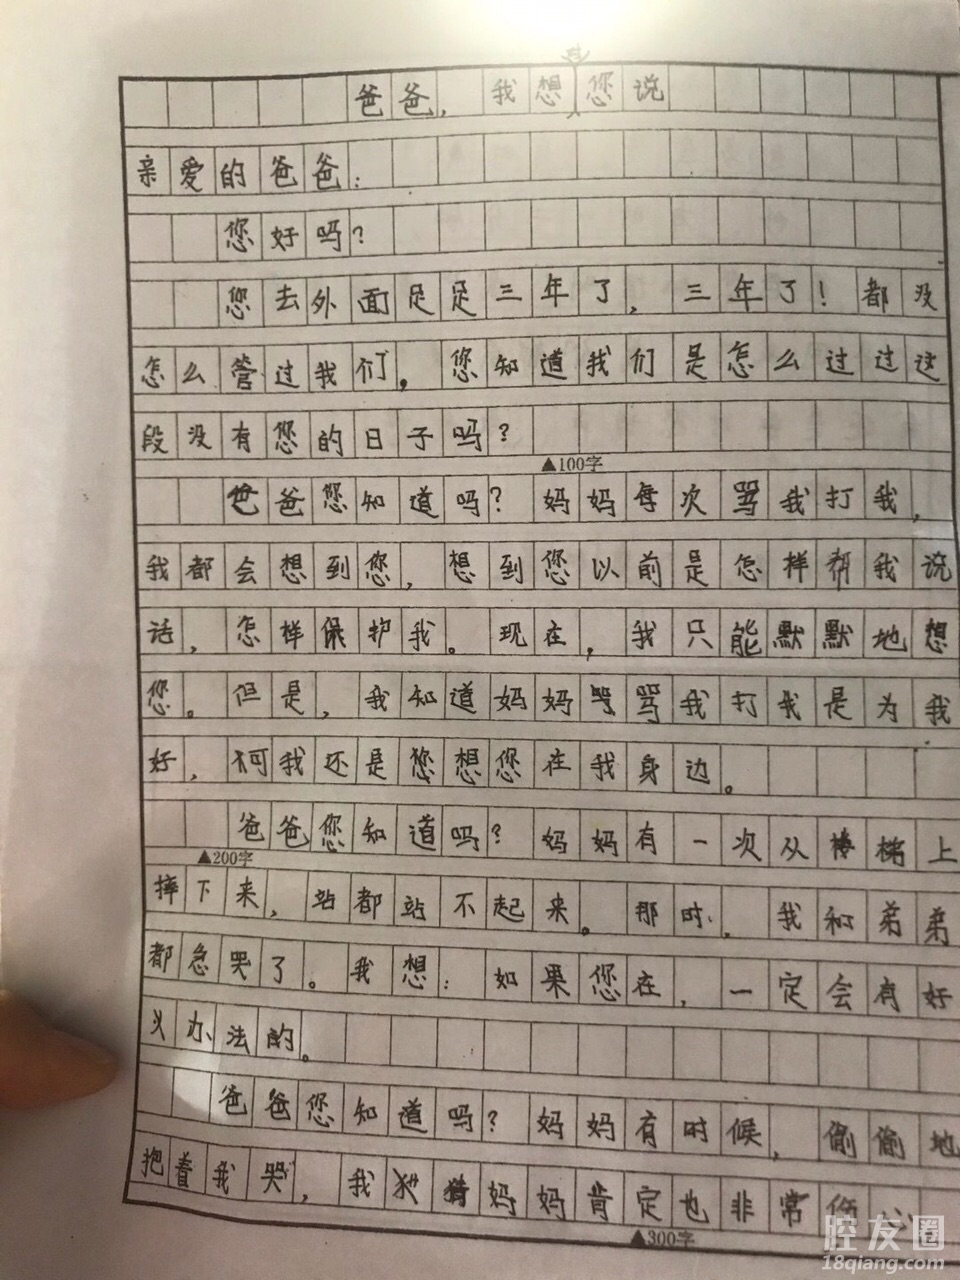 爸爸，我想对您说
亲爱的爸爸：
您好吗？
您去外面足足三年了，三年了！都没
怎么管过我们，您知道我们是怎么过过这
段没有您的日子吗？
▲100字
爸爸您知道吗？妈妈每次骂我打我，
我都会想到您，想到您以前是怎样帮我说
话，怎样保护我。现在，我只能默默地想
您。但是，我知道妈妈骂我打我是为我
好，可我还是想您在我身边。
爸爸您知道吗？妈妈有一次从楼梯上
▲200字
摔下来，站都站不起来。那时，我和弟弟
都急哭了。我想：如果您在，一定会有好
办法的。
爸爸您知道吗？妈妈有时候，偷偷地
抱着我哭，我猜妈妈肯定也非常伤心
▲300字
腔友圈
18qiang.com